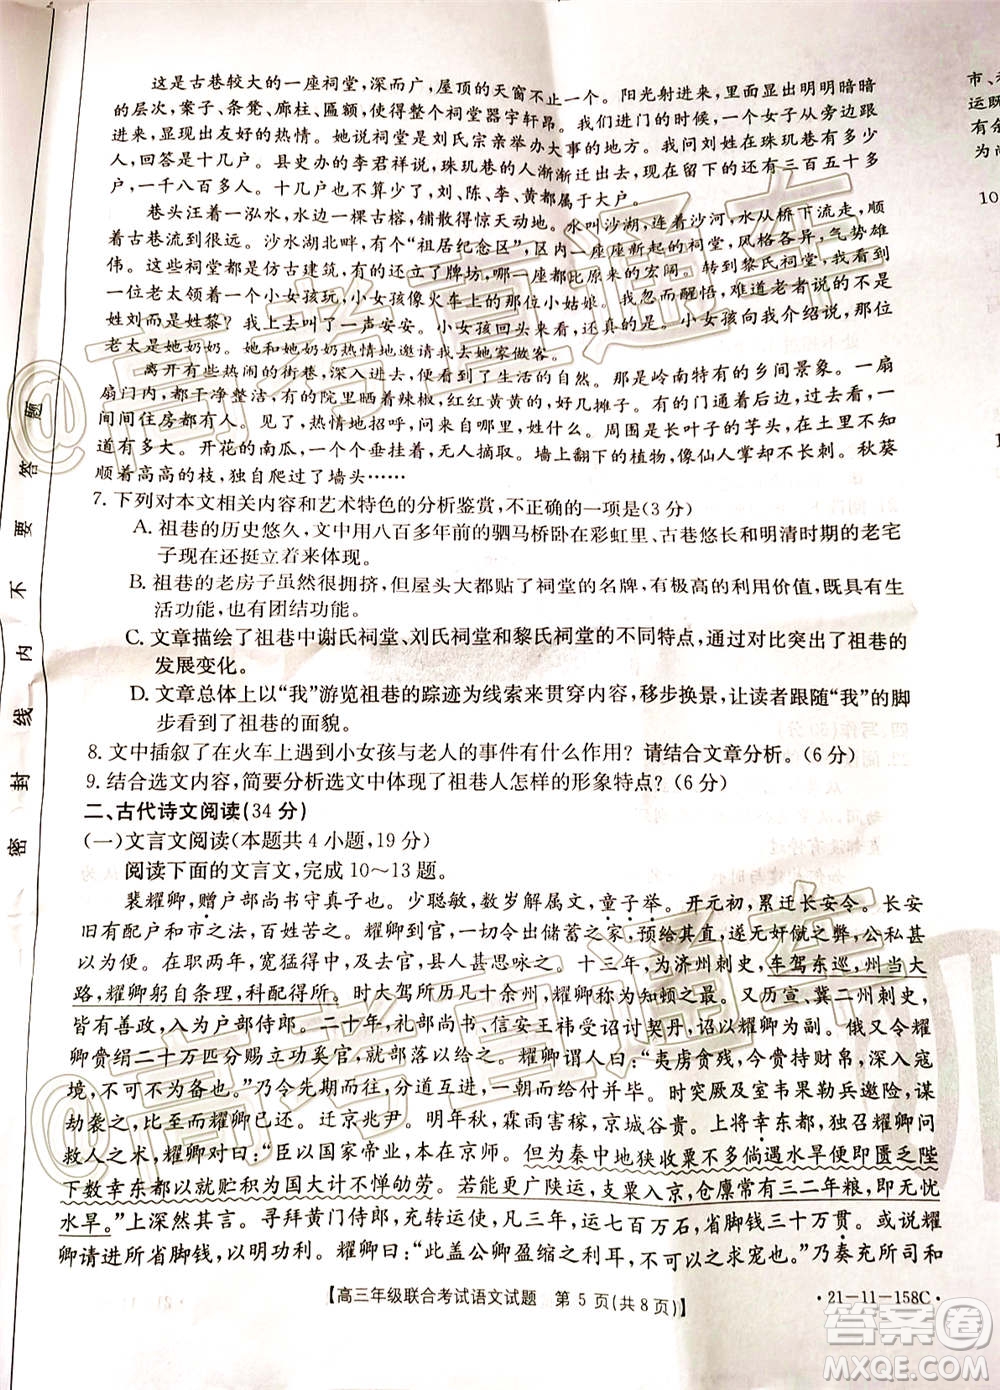 这是古巷较大的一座祠堂，深而广，屋顶的天窗不止一个。阳光射进来，空间出现明明暗暗
的层次，案子、条凳、廊柱、匾额，使得整个祠堂器宇轩昂。我们进门的时候，一个女子从旁边跟
进来，回答着我们好奇的热情。她说祠堂是刘氏宗亲举办大事的地方。我问刘姓在珠玑巷有多少
户，她答十几户。县史办的李君祥说，珠玑巷的人渐渐迁出去，现在留下的只有三百五十多
户，一千八百多人。十几户也就成了大户，刘、陈、李、黄都属于大户。
巷头汪着一泓水，水边一棵古榕，铺散得惊天动地。水叫沙湖，连着沙河，水从桥下流走，顺
着古巷流到很远。沙水湖北畔，有个“祖居纪念区”，区内一座座新起的祠堂，风格各异，气势雄
伟。这些祠堂都是仿古建筑，有的还建了牌坊，哪一座都比原来的宏阔。转到黎氏祠堂，看到
一位老太领着一个小女孩玩，小女孩像火车上的那位小姑娘。
姓刘而是姓黎。我叫了一声安安。小女孩回头笑了，有些腼腆。小女孩向我介绍说，那位
老太是她奶奶。她和她奶奶热情地邀请我去她家坐坐。
离开有些热闹的街巷，深入进去，会感觉到生活的自然。那是岭南特有的乡间景象。一扇
扇门内，都干净整洁，有的院里晒着辣椒，红红黄黄的，好几摊子。有人在门口做着小吃，一
间间住房都有人，热情地招呼，问来自哪里，姓什么。周围是长叶子的芋头，不知道地下的果
实有多大。开花的南瓜，一盏盏擎着灯盏。墙上下垂的植物，像仙人掌又不是仙人掌。秋葵
顺着高高的枝，独自爬到了墙头……
7. 下列对本文相关内容和艺术特色的分析鉴赏，不正确的一项是（3分）
A. 祖巷的历史悠久，文中用八百多年前的驷马桥卧在彩虹里、古巷悠长和明清时期的老宅
子现在还挺立着来体现。
B. 祖巷的老房子虽然很拥挤，但屋头大都贴了祠堂的名牌，有极高的利用价值，既有生
活功能，也有团结功能。
C. 文章描绘了祖巷中谢氏祠堂、刘氏祠堂和黎氏祠堂的不同特点，对比突出了祖巷的
发展变化。
D. 文章总体上以“我”游览祖巷的踪迹为线索来贯穿内容，移步换景，让读者跟随“我”的脚
步看到了祖巷的面貌。
8. 文中插叙了在火车上遇到小女孩与老人的事件有什么作用？请结合文章分析。（6分）
9. 结合选文内容，简要分析选文中体现了祖巷人怎样的形象特点？（6分）
二、古代诗文阅读（34分）
（一）文言文阅读（本题共4小题，19分）
阅读下面的文言文，完成10～13题。
裴耀卿，赠户部尚书守真子也。少聪敏，数岁解属文，童子举。开元初，累迁长安令。长安
旧有配户和市之法，百姓苦之。耀卿到官，一切令出储蓄之家，预给其直，遂无奸僦之弊，公私甚
以为便。在职两年，宽猛得中，及去官，县人甚思咏之。十三年，为济州刺史，车驾东巡，州当大
路，耀卿躬自条理，科配得所。时大驾所历凡十余州，耀卿称为知顿之最。又历宣、冀二州刺史，
皆有善政，入为户部侍郎。二十年，礼部尚书、信安王祎受诏讨契丹，诏以耀卿为副。俄又令耀
卿赍绢二十万匹分赐立功奚官，就部落以给之。耀卿谓人曰：“夷虏贪残，今赍持财帛，深入寇
境，不可不为备也。”乃令先期而往，分道互进，一朝而给付并毕。时突厥及室韦果勒兵邀险，谋
劫袭之，比至而耀卿已还。迁京兆尹。明年秋，霖雨害稼，京城谷贵。上将幸东都，独召耀卿问
救人之术，耀卿对曰：“臣以国家帝业，本在京师。但为秦中地狭收粟不多倘遇水旱便即匮乏陛
下数幸东都以就贮积为国大计不惮劬劳。若能更广陕运，支粟入京，仓廪常有三二年粮，即无忧
水旱。”上深然其言。寻拜黄门侍郎，充转运使，凡三年，运七百万石，省脚钱三十万贯。或说耀
卿请进所省脚钱，以明功利。耀卿曰：“此盖公卿盈缩之利耳，不可以之求宠也。”乃奏充所司和
【高三年级联合考试语文试题　第5页（共8页）】
·21-11-158C·
密　封　线　内　不　要　答　题
市、
运既
有余
为
10
@高考直通车
@高考直通车
答案圈
MXQE.COM